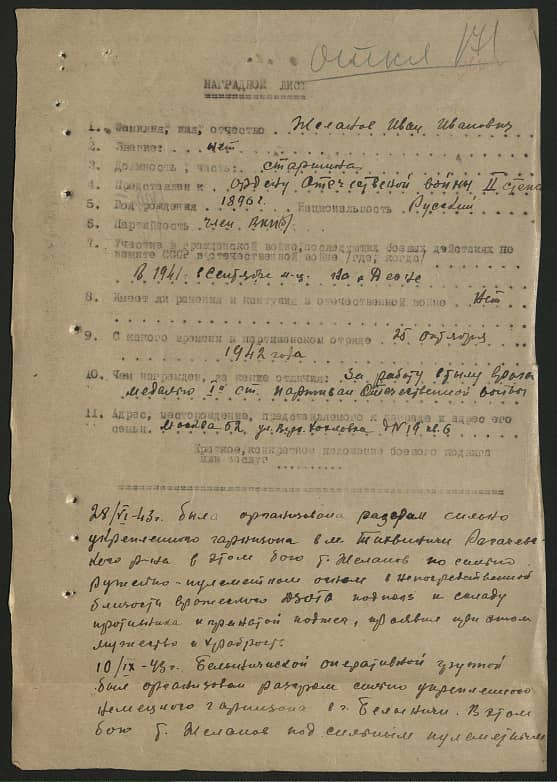 откл 171
НАГРАДНОЙ ЛИСТ
1. Фамилия, имя, отчество Желанов Иван Иванович
2. Звание: нет
3. Должность, часть: старшина
4. Представлен к ордену Отечественной войны II степ
5. Год рождения 1896 г. Национальность Русский
6. Партийность член ВКП(б)
7. Участие в гражданской войне, последующих боевых действиях по
защите СССР в отечественной войне /где, когда/
В 1941 г. Сентябре м-ц. на р. Десне
8. Имеет ли ранения и контузии в отечественной войне Нет
9. С какого времени в партизанском отряде 25 октября
1942 года
10. Чем награжден, за какие отличия: За работу в тылу врага
медалью I й ст. партизан Отечественной войны
11. Адрес, представляемого к награде и адрес его
семьи. Москва 62, ул. д N 19 кв. 6
Краткое, конкретное изложение боевого подвига
или заслуг
28/VI-43 г. был организован разгром сильно
укрепленного гарнизона в м. Рогачевс-
кого р-на в этом бою т. Желанов по сильно
ружейно-пулеметном огнем в непосредственной
близости вражеского ДЗОТа подполз к складу
противника и поджег, проявив при этом
мужество и храбрость.
10/IX-43 г. Белыничской оперативной группой
был организован разгром сильно укрепленного
немецкого гарнизона в г. Белыничи. В этом
бою т. Желанов под сильным пулеметным